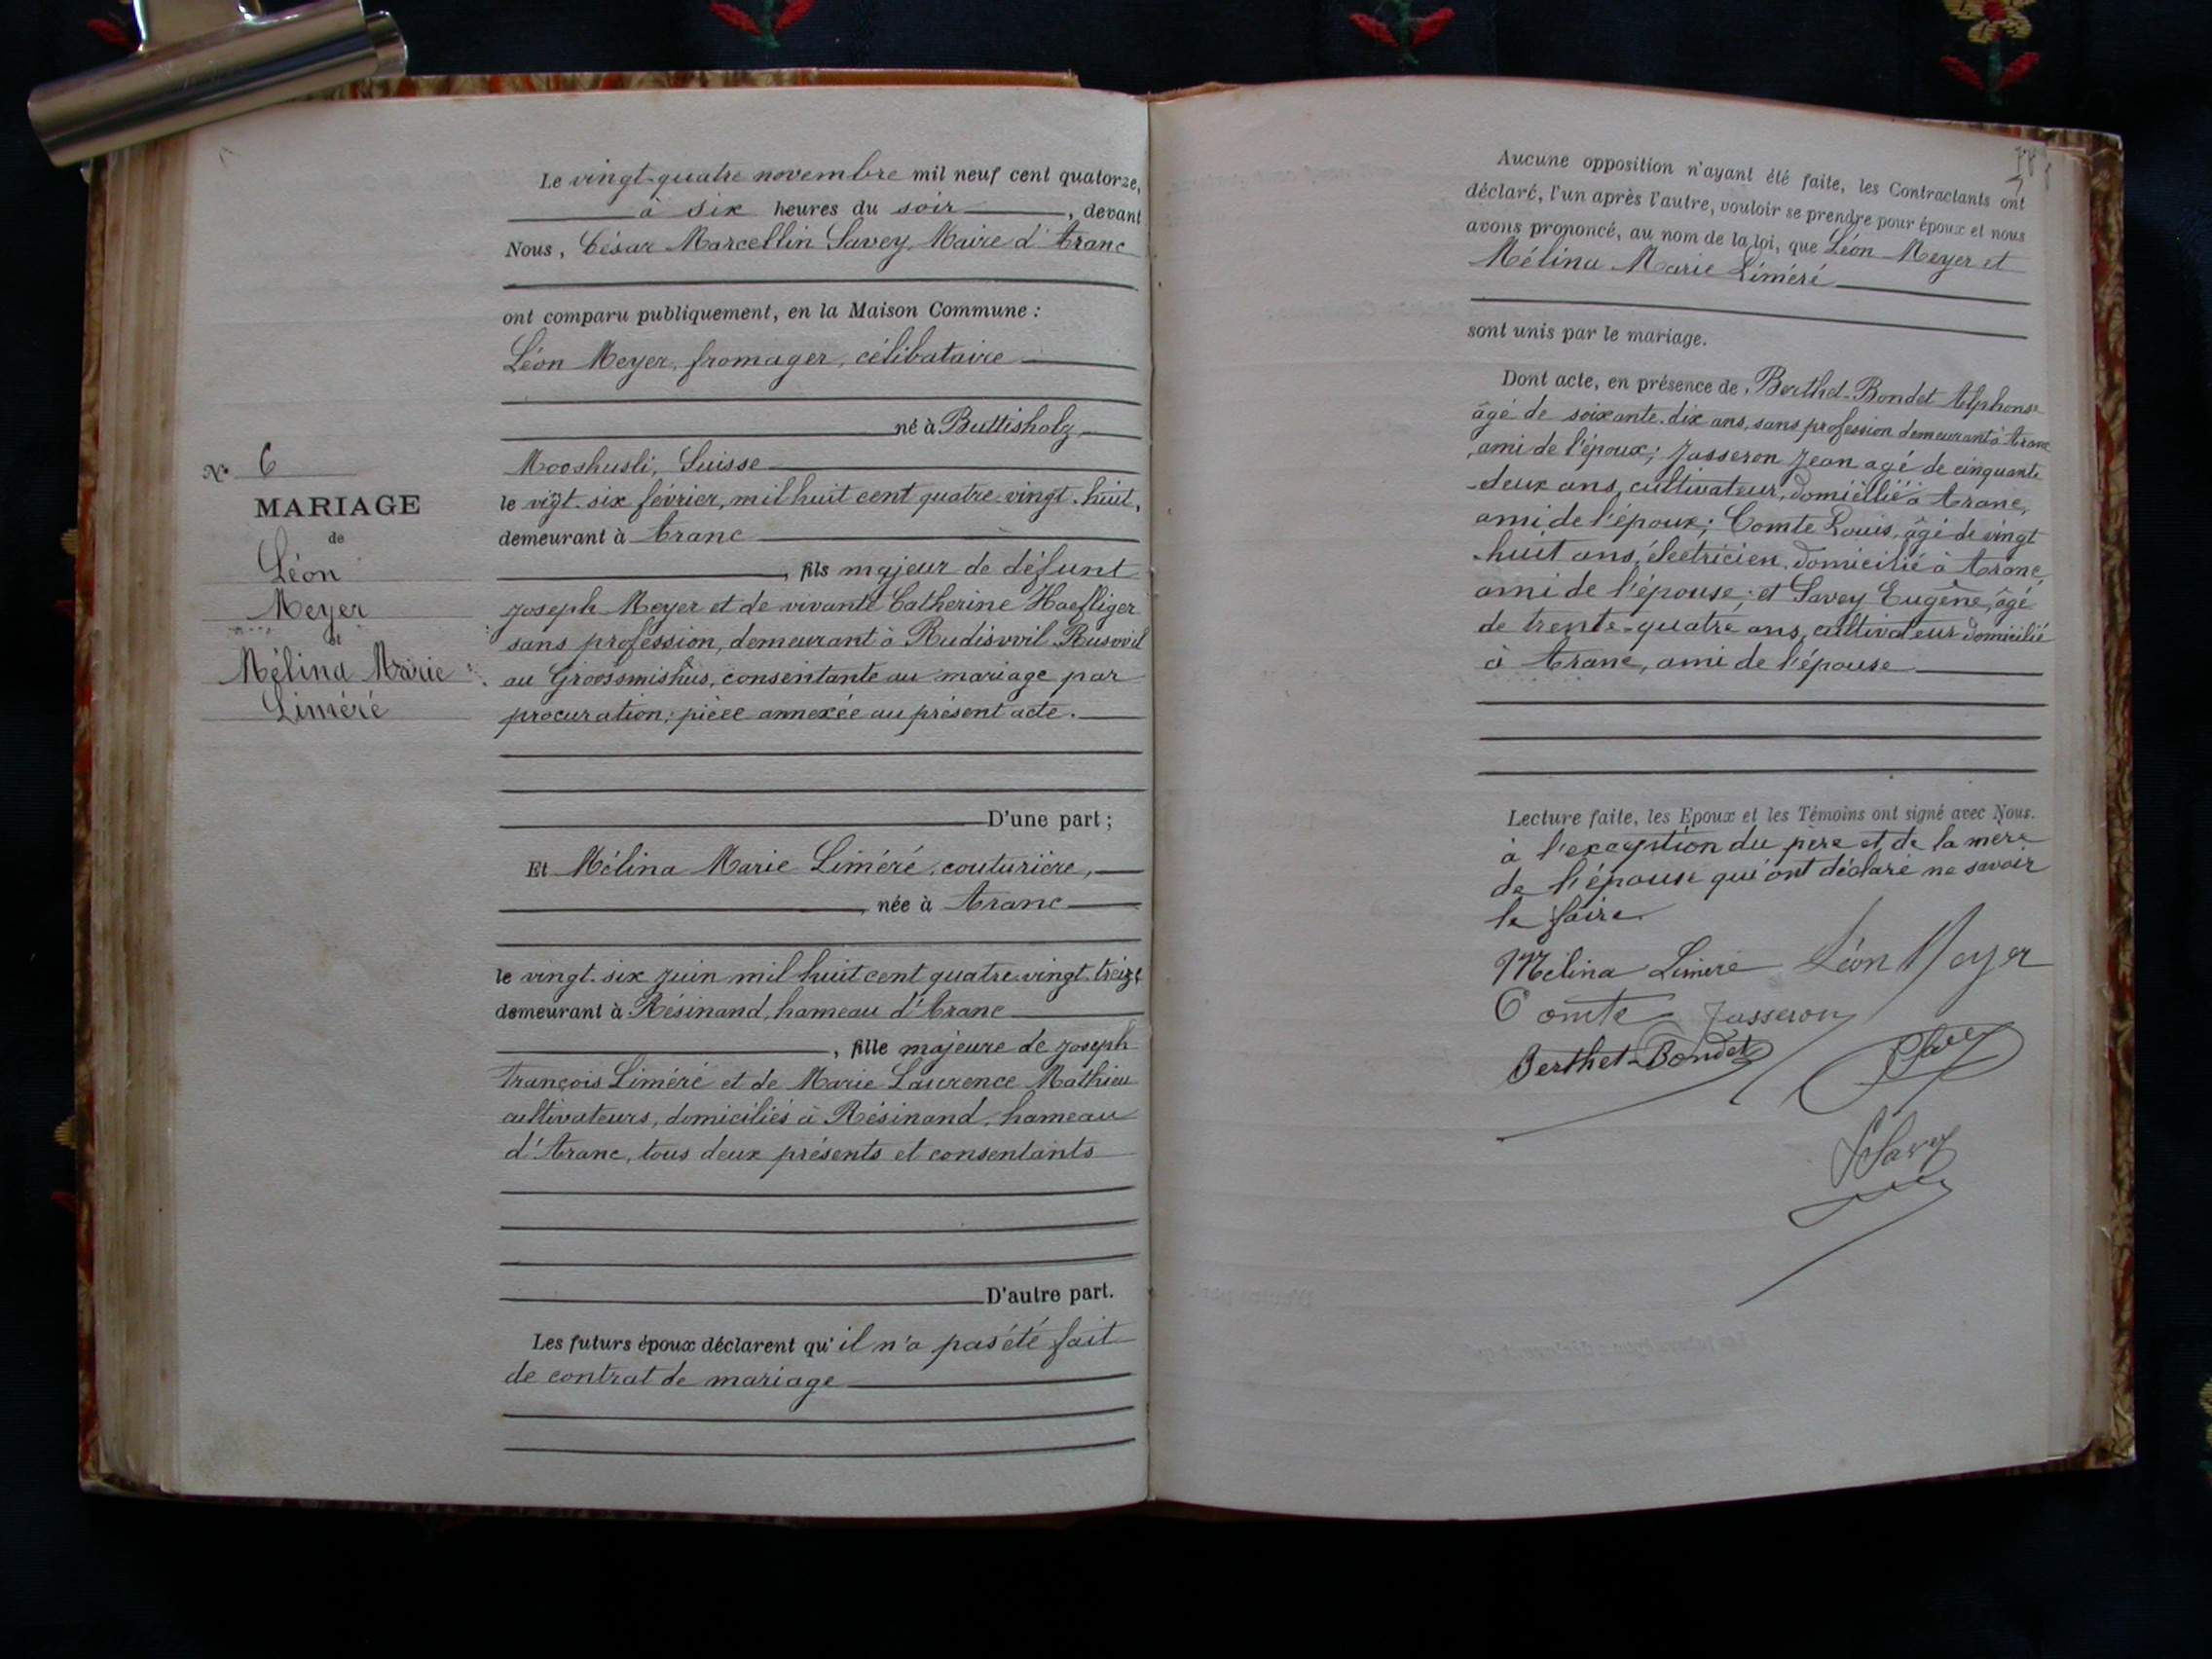 N° 6
MARIAGE
de
Léon
Meyer
et
Mélina Marie
Liméré
Le vingt-quatre novembre mil neuf cent quatorze,
à six heures du soir, devant
Nous, César Marcellin Savey, Maire d'Aranc
ont comparu publiquement, en la Maison Commune :
Léon Meyer, fromager, célibataire
né à Buttisholz
Mooshusli, Suisse
le vigt-six février, mil huit cent quatre-vingt-huit,
demeurant à Aranc
, fils majeur de défunt
Joseph Meyer et de vivante Catherine Haefliger
sans profession, demeurant à Rudiswil Rusowil
au Groossmishus, consentante au mariage par
procuration; pièce annexée au présent acte.
D'une part ;
Et Mélina Marie Liméré, couturière,
, née à Aranc
le vingt-six juin mil huit cent quatre-vingt-treize
demeurant à Résinand, hameau d'Aranc
, fille majeure de Joseph
François Liméré et de Marie Laurence Mathieu
cultivateurs, domiciliés à Résinand, hameau
d'Aranc, tous deux présents et consentants
D'autre part.
Les futurs époux déclarent qu'il n'a pas été fait
de contrat de mariage
Aucune opposition n'ayant été faite, les Contractants ont
déclaré, l'un après l'autre, vouloir se prendre pour époux et nous
avons prononcé, au nom de la loi, que Léon Meyer et
Mélina Marie Liméré
sont unis par le mariage.
Dont acte, en présence de, Berthet-Bondet Alphonse
âgé de soixante-dix ans, sans profession demeurant à Aranc
, ami de l'époux; Jasseron Jean agé de cinquante
-deux ans, cultivateur, domicilié à Aranc,
ami de l'époux; Comte Louis, âgé de vingt
-huit ans, électricien, domicilié à Aranc,
ami de l'épouse; et Savey Eugène, âgé
de trente-quatre ans, cultivateur domicilié
à Aranc, ami de l'épouse
Lecture faite, les Epoux et les Témoins ont signé avec Nous.
à l'exception du père et de la mère
de l'épouse qui ont déclaré ne savoir
le faire.
Mélina Liméré Léon Meyer
Comte Jasseron
Berthet-Bondet
Savey